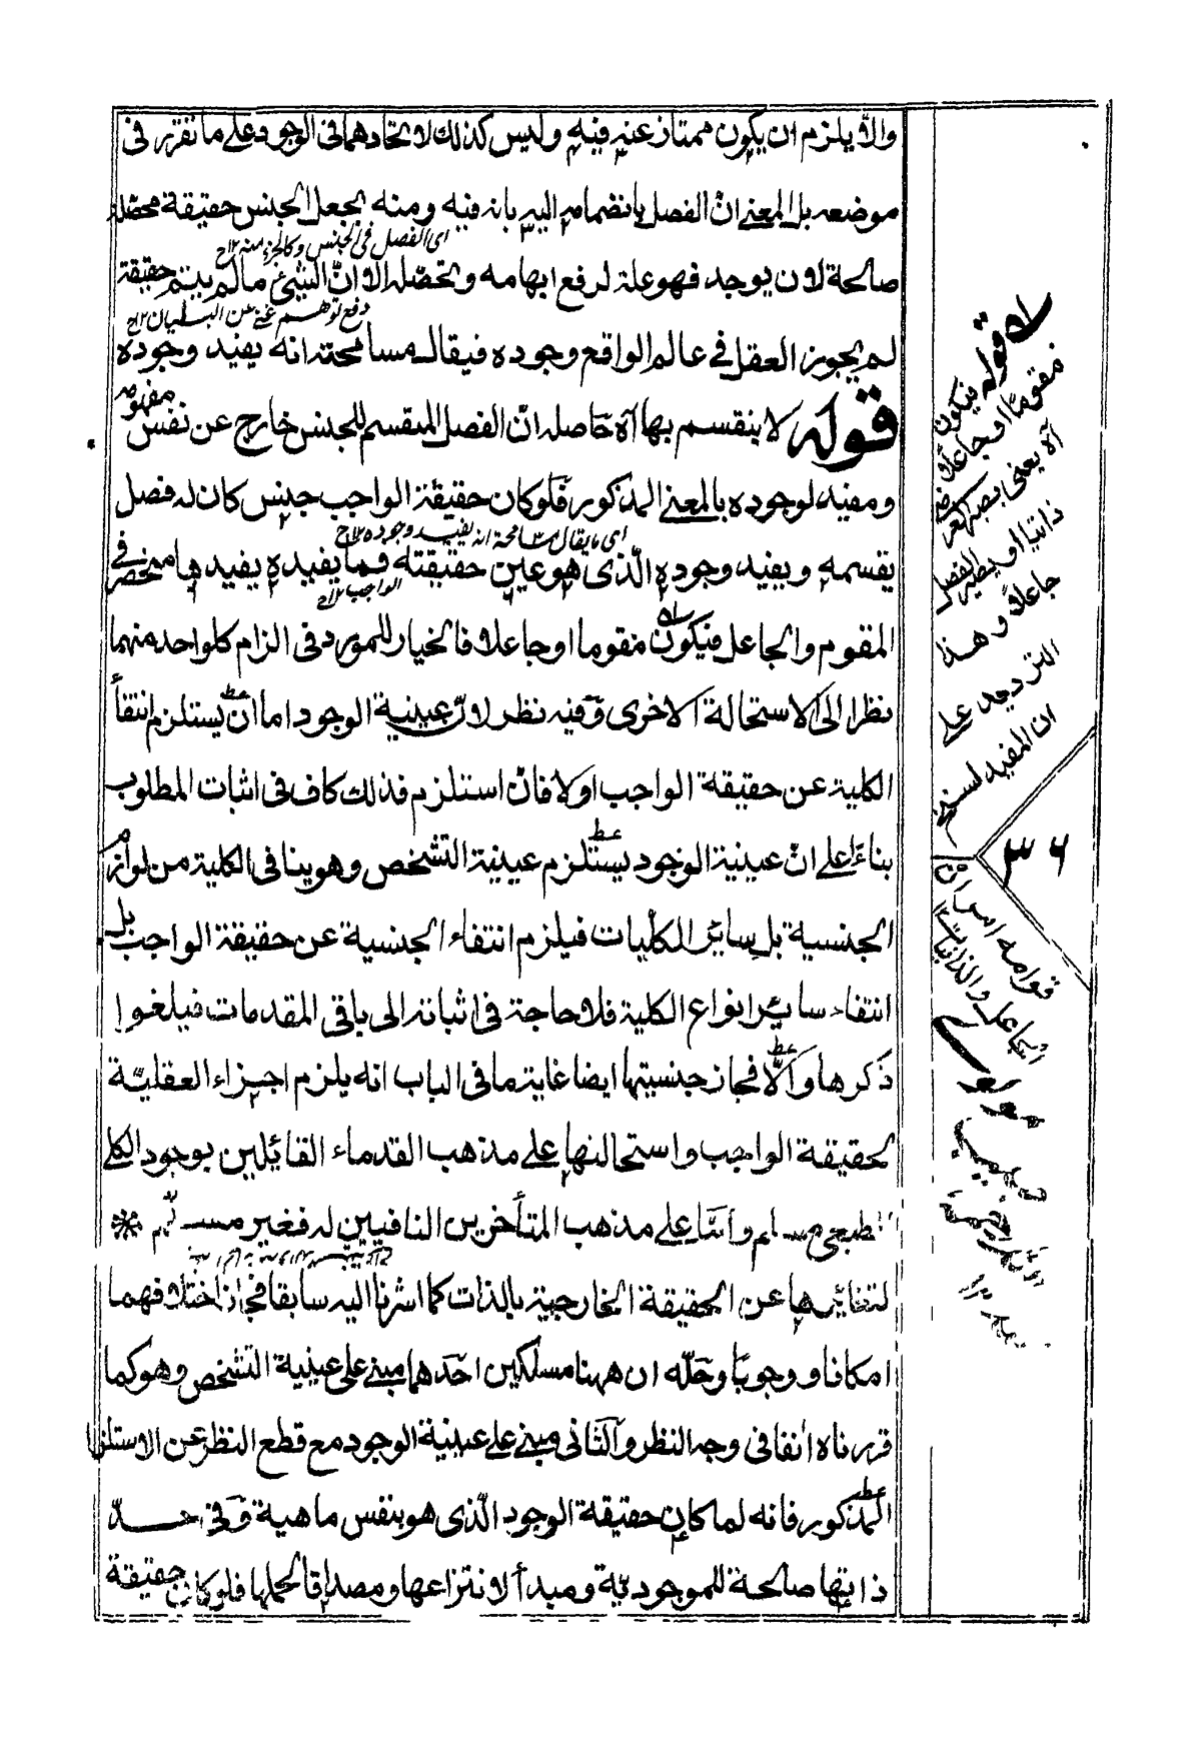 والّا يلزم ان يكون ممتاز عنه فيه وليس كذلك لاتحادهما فى الوجود على ما تقرر فى
موضعه بل المعنى انّ الفصل بانضمامه اليه بانه فيه ومنه يجعل الجنس حقيقة محصّلة
اى الفصل فى الجنس وكالجزء منه ١٢ح
صالحة لان يوجد فهو علة لرفع ابهامه وتحصّله الا انّ الشئ مالم يتم حقيقة
دفع توهم غنى عن البيان ١٢ح
لم يجوز العقل فى عالم الواقع وجوده فيقال مسامحة انه يفيد وجوده
قوله لا ينقسم بها آه حاصله انّ الفصل المقسم للجنس خارج عن نفس مفهومه
ومفيد لوجوده بالمعنى المذكور فلو كان حقيقة الواجب جنس كان له فصل
اى ما يقال مسامحة انه يفيد وجوده ١٢ح
يقسمه ويفيد وجوده الّذى هو عين حقيقته فما يفيده يفيدها منحصر فى
الواجب ١٢ح
المقوم والجاعل فيكون مقوما او جاعلا فالخيار للمورد فى الزام كل واحد منهما
نظرا الى الاستحالة الاخرى وفيه نظر لان عينية الوجود اما ان يستلزم انتفأ
الكلية عن حقيقة الواجب او لا فان استلزم فذلك كاف فى اثبات المطلوب
بناءً على انّ عينية الوجود يستلزم عينية التشخص وهو ينافى الكلية من لوازم
الجنسية بل سائر الكليات فيلزم انتفاء الجنسية عن حقيقة الواجب بل
انتفاء سائر انواع الكلية فلا حاجة فى اثباته الى باقى المقدمات فيلغوا
ذكرها والّا فجاز جنسيتها ايضا غاية ما فى الباب انه يلزم اجزاء العقليّة
لحقيقة الواجب واستحالتها على مذهب القدماء القائلين بوجود الكلى
الطبعى مسلم وأمّا على مذهب المتأخرين النافيين له فغير مسلّم
لتغائرها عن الحقيقة الخارجية بالذات كما اشرنا اليه سابقا فجاز اختلافهما
امكانا ووجوبا وحلّه ان ههنا مسلكين احدهما مبنى على عينية التشخص وهو كما
قررناه انفا فى وجه النظر والثانى مبنى على عينية الوجود مع قطع النظر عن الاستلزام
المذكور فانه لما كان حقيقة الوجود الّذى هو بنفس ماهية وفى حدّ
ذاتها صالحة للموجوديّة ومبدأ لانتزاعها ومصداقا لحملها فلو كان حقيقة
له قوله فيكون
مقوما او جاعلا
آه يعنى يصير
ذاتيا او يصير الفصل
جاعلا وهذا
الترديد على
ان المفيد لشئ
٣٦
قوامه امران
الجاعل والذاتيات ١٢
مولوى